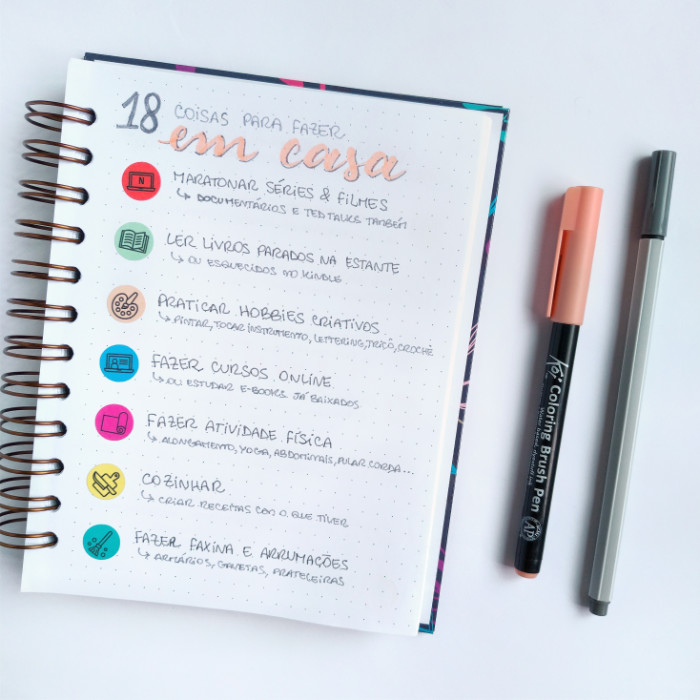 18 COISAS PARA FAZER
em casa
N
MARATONAR SÉRIES & FILMES
↳ DOCUMENTÁRIOS E TED TALKS TAMBÉM
LER LIVROS PARADOS NA ESTANTE
↳ OU ESQUECIDOS NO KINDLE
PRATICAR HOBBIES CRIATIVOS
↳ PINTAR, TOCAR INSTRUMENTO, LETTERING, TRICÔ, CROCHÊ
FAZER CURSOS ONLINE
↳ OU ESTUDAR E-BOOKS JÁ BAIXADOS
FAZER ATIVIDADE FÍSICA
↳ ALONGAMENTO, YOGA, ABDOMINAIS, PULAR CORDA...
COZINHAR
↳ CRIAR RECEITAS COM O QUE TIVER
FAZER FAXINA E ARRUMAÇÕES
↳ ARMÁRIOS, GAVETAS, PRATELEIRAS
Koi Coloring Brush Pen
AP